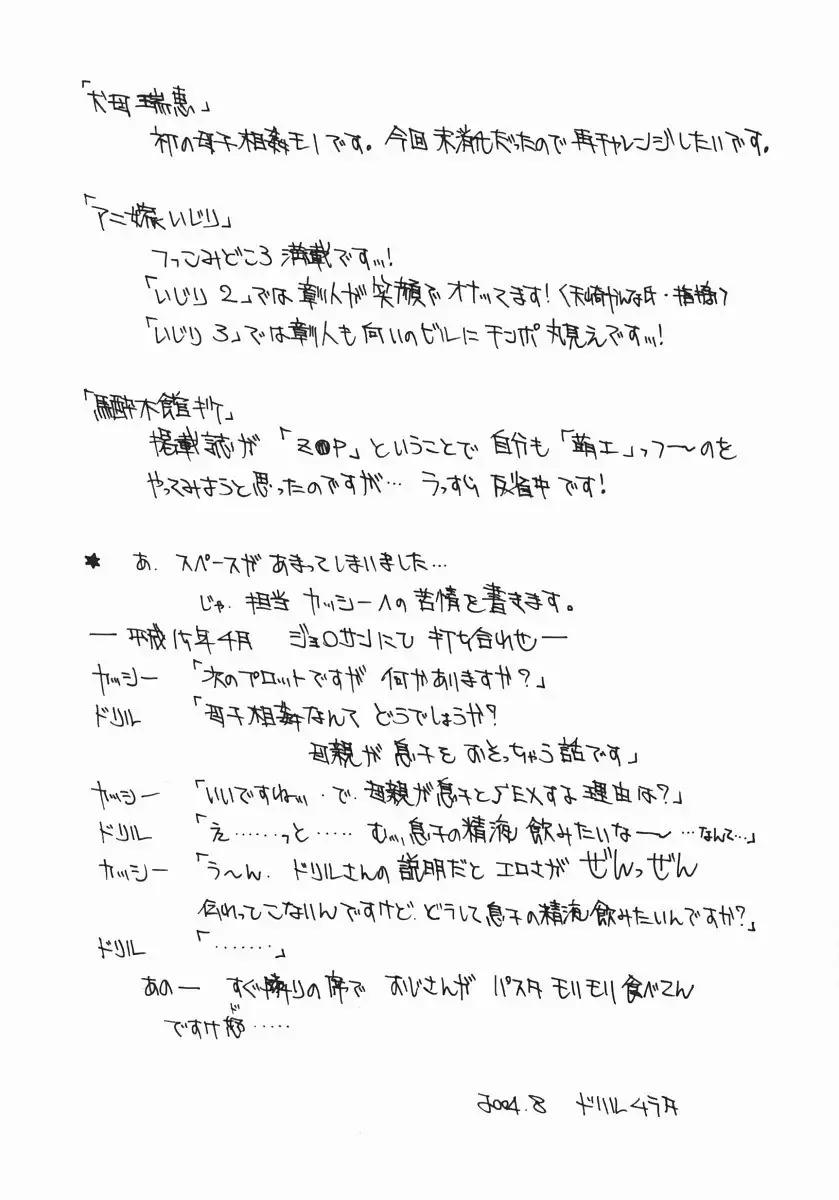 「犬母瑞恵」
初の母子相姦モノです。今回未消化だったので再チャレンジしたいです。
「アニ嫁いじり」
つっこみどころ満載ですッ!
「いじり2」では彰人が笑顔でオナッてます!(天崎かんな氏・指摘)
「いじり3」では彰人も向いのビルにチンポ丸見えですッ!
「馬酔木館
掲載誌が「Z●P」ということで自分も「萌エ」っつ〜のを
やってみようと思ったのですが…うっすら反省中です!
★ あ.スペースがあまってしまいました…
じゃ.担当カッシーへの苦情を書きます。
― 平成15年4月 ジョ○サンにて打ち合わせ ―
カッシー 「次のプロットですが何かありますか?」
ドリル 「母子相姦なんてどうでしょうか?
母親が息子をおそっちゃう話です」
カッシー 「いいですねッ.で.母親が息子とSEXする理由は?」
ドリル 「え……っと…… むッ,息子の精液飲みたいな〜…なんて…」
カッシー 「う〜ん.ドリルさんの説明だとエロさがぜんっぜん
伝わってこないんですけど.どうして息子の精液飲みたいんですか?」
ドリル 「……‥」
あの― すぐ隣りの席でおじさんがパスタモリモリ食べてん
ですけ怒ド……
2004.8 ドリルムラタ